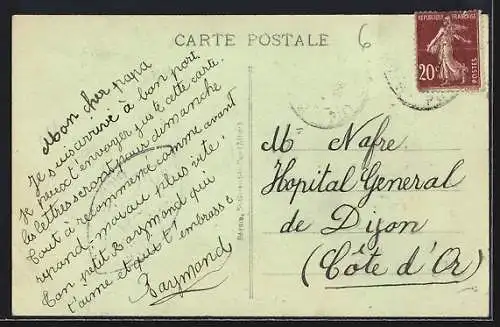 CARTE POSTALE
6
REPUBLIQUE FRANÇAISE
20c
POSTES
Mon cher papa
Je suis arrivé à bon port
Je peux t'envoyer que cette carte.
les lettres seront pour dimanche
tout a recommencé comme avant
répond-moi au plus vite:
ton petit Raymond qui
t'aime et qui t'embrasse
Raymond
M Nafre
Hopital General
de Dijon
(Côte d'Or)